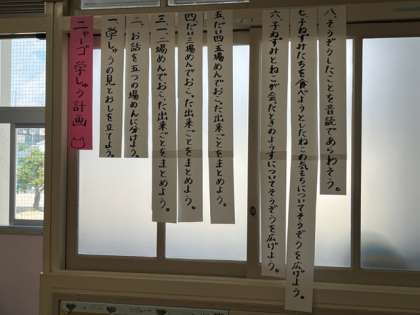 ニャーゴ 学しゅう計画
一、学しゅうの見とおしを立てよう。
二、お話を五つの場めんに分けよう。
三、一、二場めんでおこった出来ごとをまとめよう。
四、だい三場めんでおこった出来ごとをまとめよう。
五、だい四、五場めんでおこった出来ごとをまとめよう。
六、子ねずみとねこが会ったときのようすについてそうぞうを広げよう。
七、子ねずみたちを食べようとしたねこの気もちについてそうぞうを広げよう。
八、そうぞうしたことを音読であらわそう。